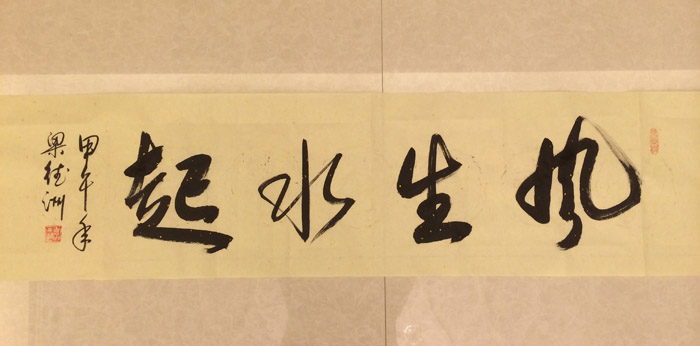 风生水起
甲午年
梁德洲